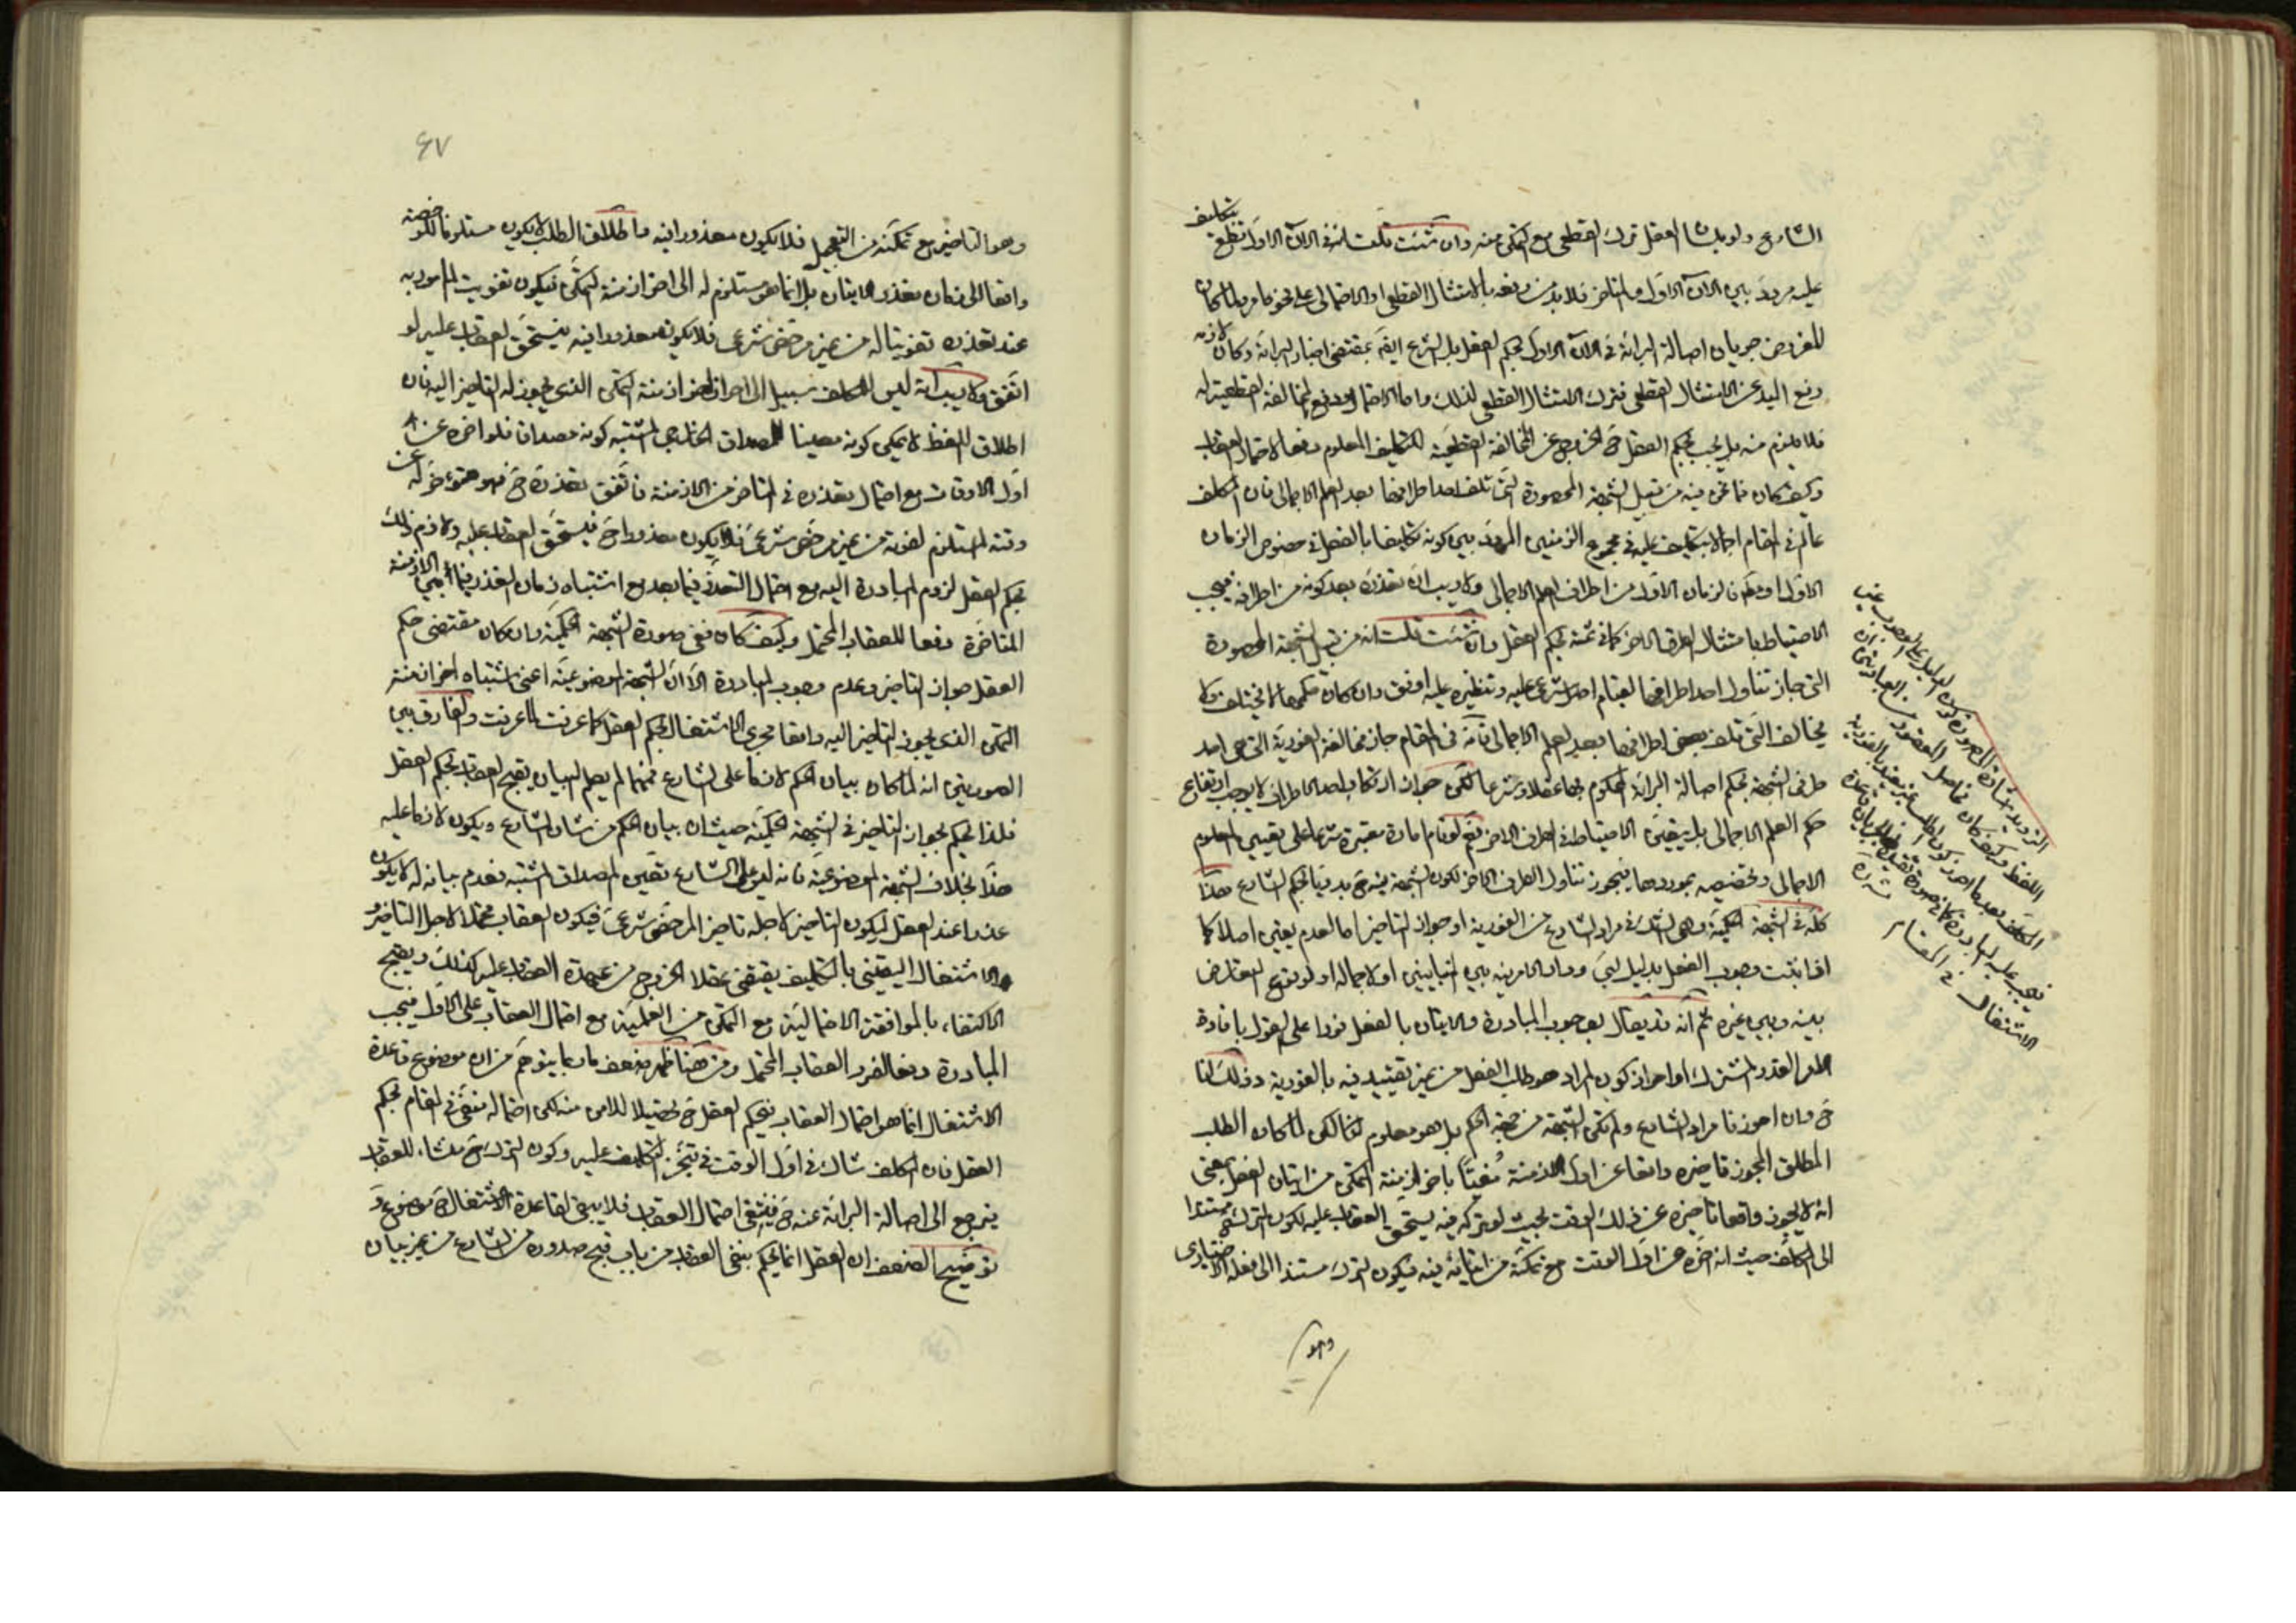 الشارع ولو بلسان العقل ترك القطعي مع التمكن منه وان شئت قلت انه في الآن الاول قطع بتكليف
عليه مردد بين الآن الاول والمتأخر فلا بد من رفعه بالامتثال القطعي او الاحتمالي على نحو ما مر ولما كان
المفروض جريان اصالة البرائة في الآن الاول بحكم العقل بل الشرع ايضا بمقتضى اخبار البرائة وكان لازمه
رفع اليد عن الامتثال القطعي فترك الامتثال القطعي لذلك واما الاحتمالي ودفع المخالفة القطعية له
فلا يلزم منه بل يجب بحكم العقل ح الخروج عن المخالفة القطعية للتكليف المعلوم دفعا لاحتمال العقاب
وكيف كان فما نحن فيه من قبيل الشبهة المحصورة التي تلف احد اطرافها بعد العلم الاجمالي فان المكلف
عالم في المقام اجمالا بتكليف عليه في مجموع الزمنين المردد بين كونه تكليفا بالفعل في خصوص الزمان
الاول او الزمان الاول من اطراف العلم الاجمالي ولا ريب ان تعذره بعد كونه من اطرافه فيجب
الاحتياط بامتثال الطرف الآخر كما في ثمة بحكم العقل وان شئت قلت انه من قبيل الشبهة المحصورة
التي جاز تناول احد اطرافها لقيام اصل شرعي عليه وتنظيره عليه اوفق وان كان حكمهما لا يختلف ولا
يخالف التي تلف بعض اطرافها بعد العلم الاجمالي فانه في المقام جاز مخالفة الفورية التي هي احد
طرفي الشبهة بحكم اصالة البرائة المحكوم بها عقلا وشرعا لكن جواز ارتكاب احد الاطراف لا يوجب ارتفاع
حكم العلم الاجمالي بل يتعين الاحتياط في الطرف الآخر نعم لو قام امارة معتبرة شرعا على تعيين المعلوم
الاجمالي وتخصيصه بموردها فيجوز تناول الطرف الآخر لكون الشبهة فيه ح بدوية بحكم الشارع هذا
كله في الشبهة الحكمية وهي الشك في مراد الشارع من الفورية او جواز التأخير اما لعدم يقين اصلا كما
اذا ثبت وجوب الفعل بدليل لبي ودار الامر فيه بين المتباينين او لاجماله او لوقوع التعارض
بينه وبين غيره ثم انه قد يقال بوجوب المبادرة والاتيان بالفعل فورا على القول بافادة
الامر القدر المشترك او احراز كون المراد هو طلب الفعل من غير تقييد فيه بالفورية وذلك لانا
ح وان احرزنا مراد الشارع ولم تكن الشبهة من جهة الحكم بل هو معلوم لنا لكن لما كان الطلب
المطلق المجوز تأخيره واقعا عن اول الازمنة مغيا بآخر ازمنة التمكن من اتيان الفعل بمعنى
انه لا يجوز واقعا تأخيره عن ذلك الوقت بحيث لو تركه فيه يستحق العقاب عليه لكون الترك ح مستندا
الى المكلف حيث انه اخره عن اول الوقت مع تمكنه من اتيانه فيه فيكون الترك مستندا الى فعله الاختياري
الاشتغال في المقام
٤٧
وهو التأخير مع تمكنه من التعجيل فلا يكون معذورا فيه واطلاق الطلب لا يكون مستلزما لرخصة
واقعا الى زمان تعذر الاتيان بل انما هو مستلزم له الى آخر ازمنة التمكن فيكون تفويت المأمور به
عند تعذره تفويتا له من غير مرخص شرعي فلا يكون معذورا فيه فيستحق العقاب عليه لو
اتفق ولا ريب انه ليس للمكلف سبيل الى احراز آخر ازمنة التمكن الذي يجوز له التأخير اليه فان
اطلاق اللفظ لا يمكن كونه معينا للمصداق الخارجي المشتبه كونه مصداقا فلو اخره عن
اول الاوقات مع احتمال تعذره في المتأخر من الازمنة فاتفق تعذره ح فهو مؤخر له عن
وقته المستلزم لفوته من غير مرخص شرعي فلا يكون معذورا ح فيستحق العقاب عليه ولازم ذلك
بحكم العقل لزوم المبادرة اليه مع احتمال التعذر فيما بعد مع اشتباه زمان التعذر فيما بين الازمنة
المتأخرة دفعا للعقاب المحتمل وكيف كان ففي صورة الشبهة الحكمية وان كان مقتضى حكم
العقل جواز التأخير وعدم وجوب المبادرة الا ان الشبهة الموضوعية اعني اشتباه آخر ازمنة
التمكن الذي يجوز التأخير اليه واقعا مجرى الاشتغال بحكم العقل كما عرفت والفارق بين
الصورتين انه لما كان بيان الحكم لازما على الشارع فمهما لم يصل البيان يقبح العقاب بحكم العقل
فلذا يحكم بجواز التأخير في الشبهة الحكمية حيث ان بيان الحكم من شأن الشارع ويكون لازما عليه
هذا بخلاف الشبهة الموضوعية فانه ليس على الشارع تعيين المصداق المشتبه فعدم بيانه له لا يكون
عذرا عند العقل ليكون التأخير لاجله تأخيرا لمرخص شرعي فيكون العقاب محتملا لاجل التأخير
والاشتغال اليقيني بالتكليف يقتضي عقلا الخروج من عهدة العقاب عليه كذلك ويقبح
الاكتفاء بالموافقة الاحتمالية مع التمكن من العلمية مع احتمال العقاب على الاول فيجب
المبادرة دفعا لضرر العقاب المحتمل ومن هنا ظهر ضعف ما ربما يتوهم من ان موضوع قاعدة
الاشتغال انما هو احتمال العقاب فيحكم العقل ح تحصيلا للامن منه لكن احتماله منتف في المقام بحكم
العقل فان المكلف شاك في اول الوقت في تنجز التكليف عليه وكون الترك ح منشأ للعقاب
فيرجع الى اصالة البرائة عنه ح فينتفي احتمال العقاب فلا يبقى لقاعدة الاشتغال ح موضوع و
توضيح الضعف ان العقل انما يحكم بنفي العقاب من باب قبح صدوره من الشارع من غير بيان